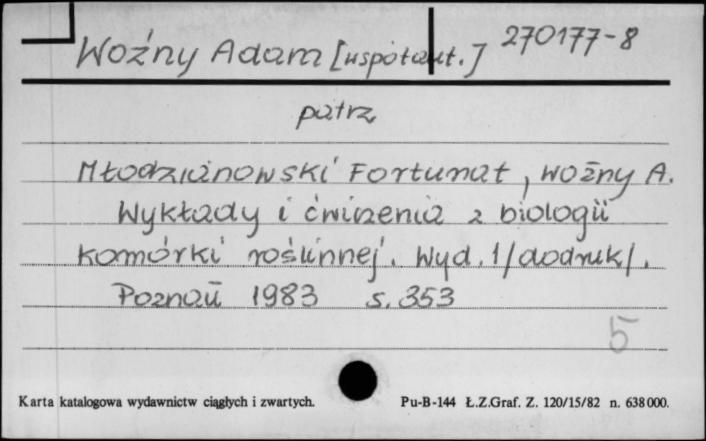 Woźny Adam [współaut.] 270177-8
patrz
Młodzianowski Fortunat, Woźny A.
Wykłady i ćwiczenia z biologii
komórki roślinnej. Wyd. 1/dodruk/.
Poznań 1983 s. 353
5
Karta katalogowa wydawnictw ciągłych i zwartych. Pu-B-144 Ł.Z.Graf. Z. 120/15/82 n. 638000.